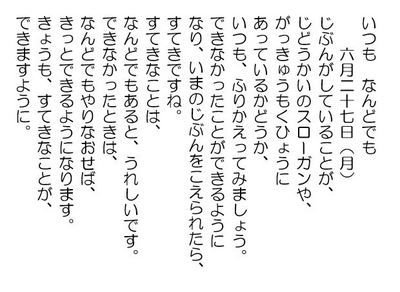 いつも　なんどでも
六月二十七日（月）
じぶんがしていることが、
じどうかいのスローガンや、
がっきゅうもくひょうに
あっているかどうか、
いつも、ふりかえってみましょう。
できなかったことができるように
なり、いまのじぶんをこえられたら、
すてきですね。
すてきなことは、
なんどでもあると、うれしいです。
できなかったときは、
なんどでもやりなおせば、
きっとできるようになります。
きょうも、すてきなことが、
できますように。